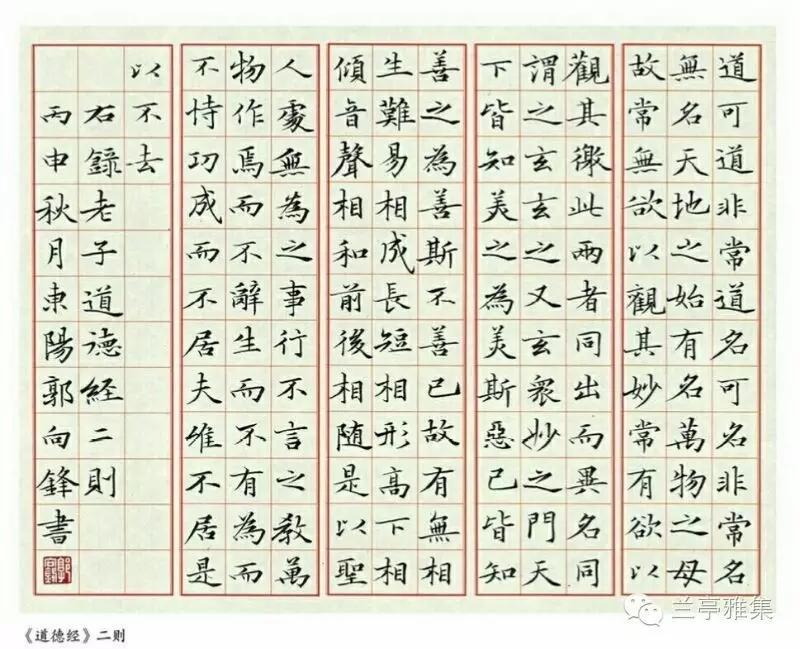 道可道非常道名可名非常名
無名天地之始有名萬物之母
故常無欲以觀其妙常有欲以
觀其徼此兩者同出而異名同
謂之玄玄之又玄衆妙之門天
下皆知美之為美斯惡已皆知
善之為善斯不善已故有無相
生難易相成長短相形高下相
傾音聲相和前後相随是以聖
人處無為之事行不言之教萬
物作焉而不辭生而不有為而
不恃功成而不居夫維不居是
以不去
右錄老子道徳経二則
丙申秋月東陽郭向鋒書
《道德经》二则
兰亭雅集